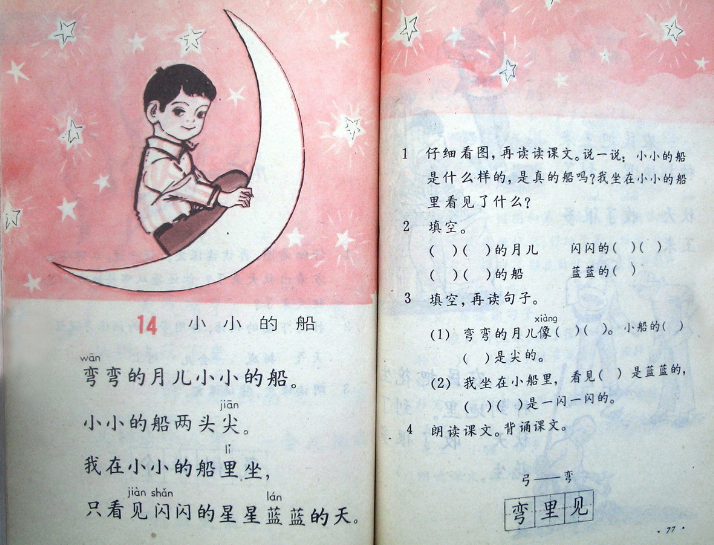 14 小小的船
wān
弯弯的月儿小小的船。
jiān
小小的船两头尖。
lǐ
我在小小的船里坐，
jiàn shǎn lán
只看见闪闪的星星蓝蓝的天。
1 仔细看图，再读读课文。说一说：小小的船
是什么样的，是真的船吗？我坐在小小的船
里看见了什么？
2 填空。
( )( )的月儿 闪闪的( )( )
( )( )的船 蓝蓝的( )
3 填空，再读句子。
xiàng
(1) 弯弯的月儿像( )( )。小船的( )
( )是尖的。
(2) 我坐在小船里，看见( )是蓝蓝的，
( )( )是一闪一闪的。
4 朗读课文。背诵课文。
弓——弯
弯里见
·77·